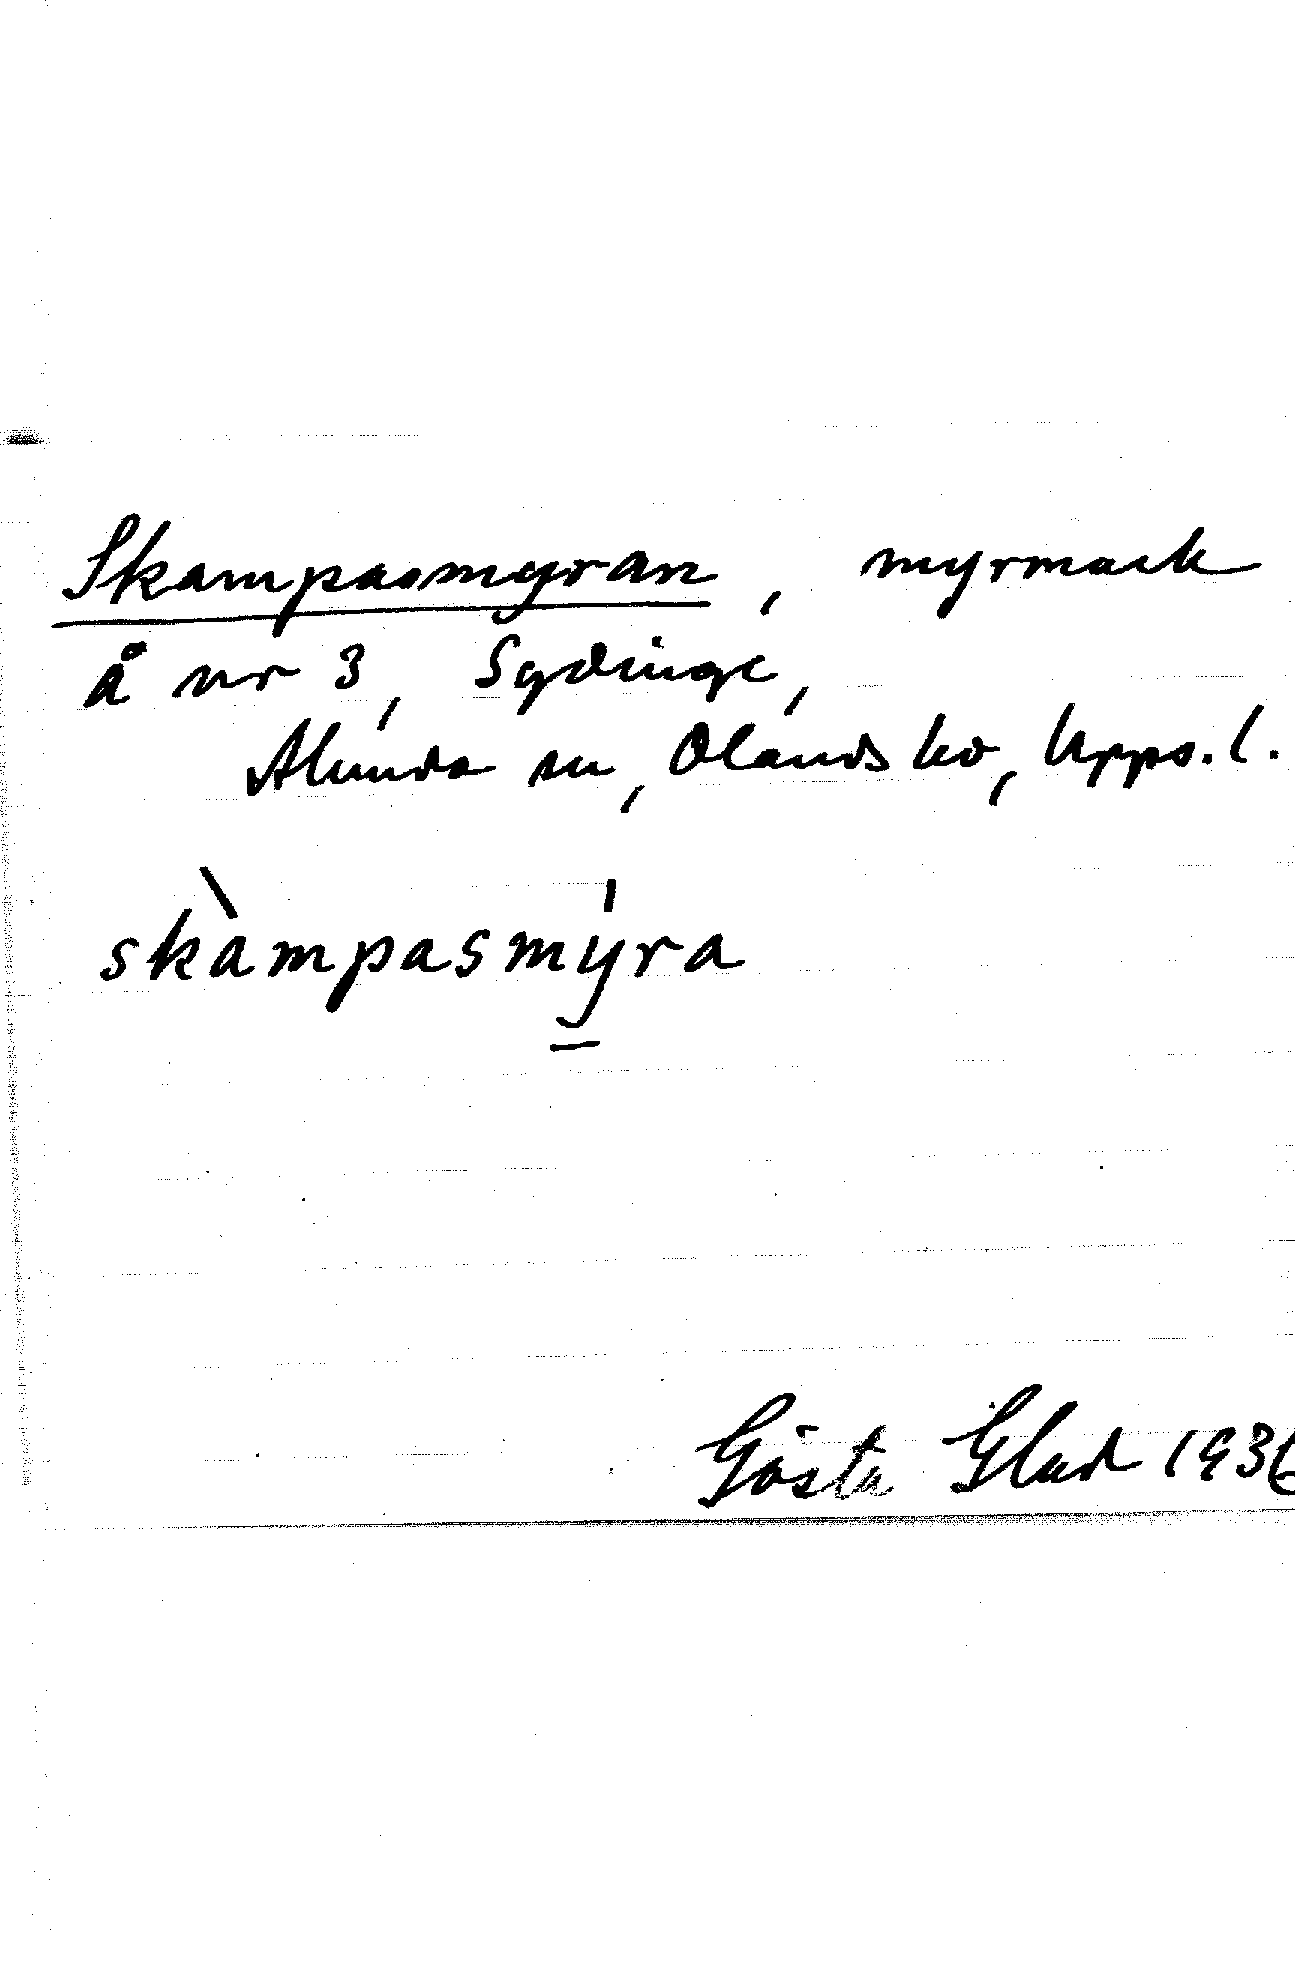 Skampasmyran, myrmark
å nr 3, Sydinge,
Alunda sn, Olands hd, Upps. l.
skàmpasmy̠̍ra
Gösta Glad 1936